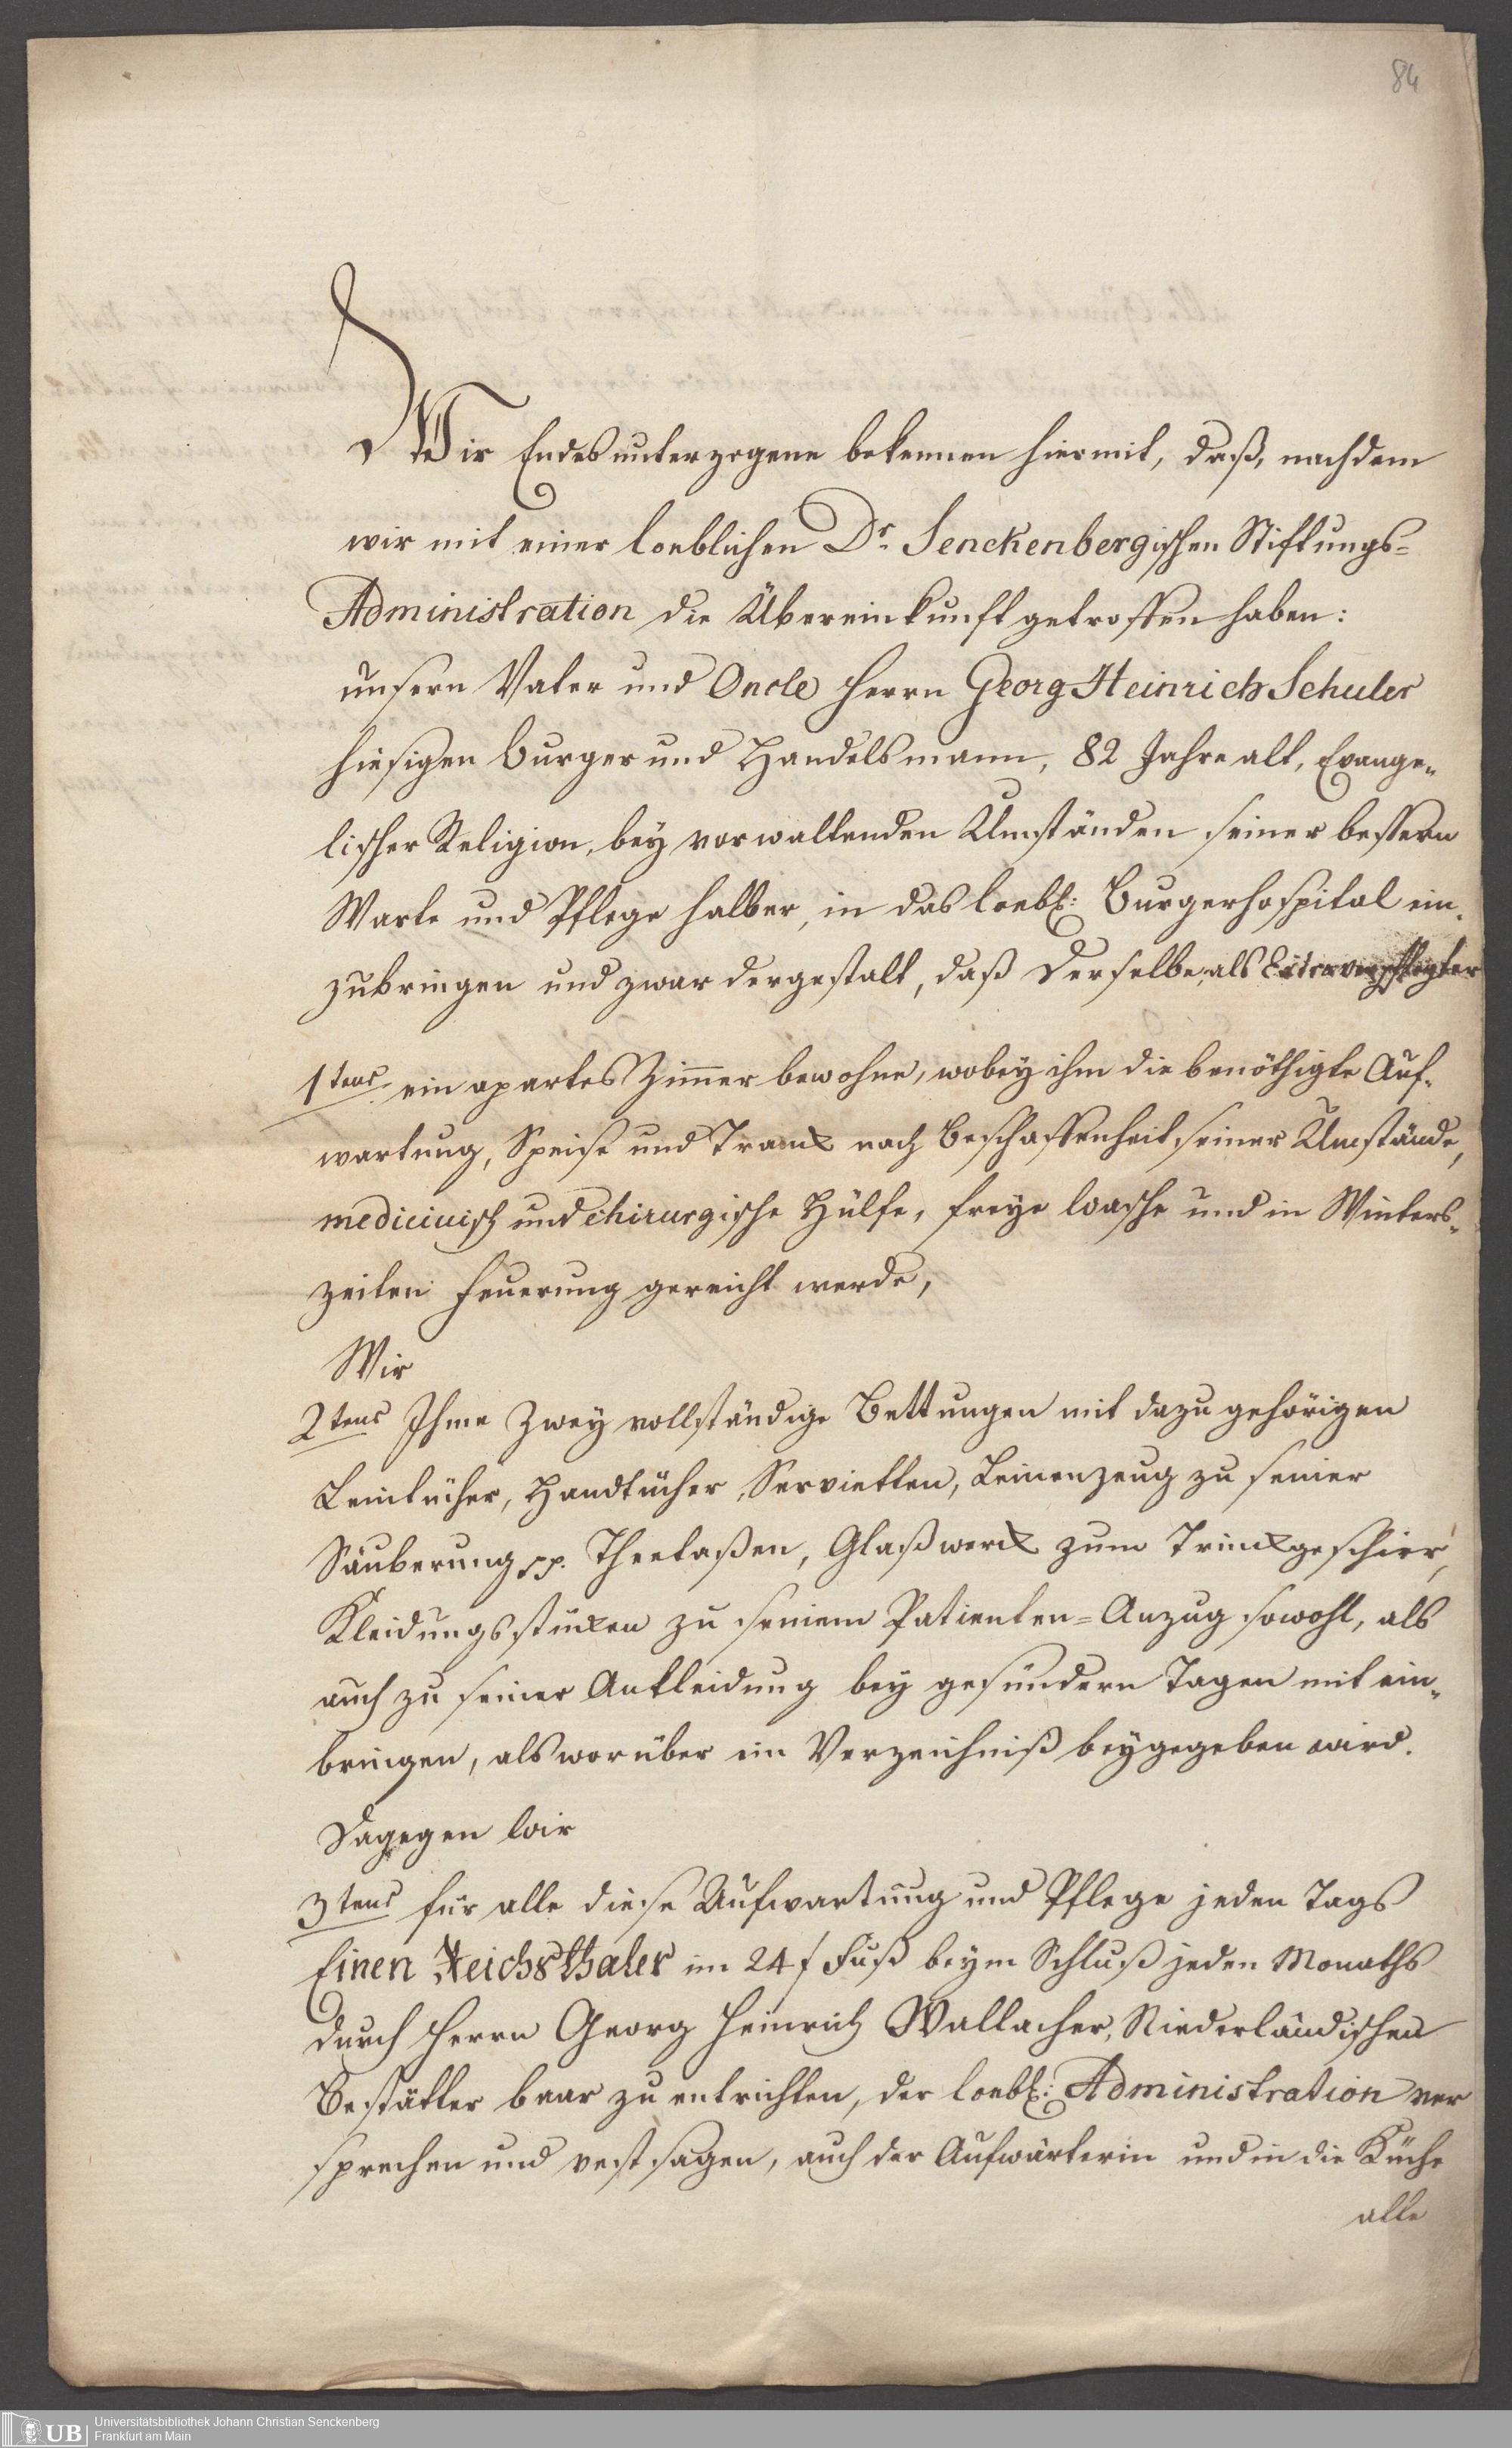 84
Wir Endesunterzogene bekennen hiermit, daß, nachdem
wir mit einer loeblichen Dr. Senckenbergischen Stiftungs=
Administration die Übereinkunft getroffen haben:
unsern Vater und Oncle Herrn Georg Heinrich Schuler
hiesigen Burger und Handelsmann, 82 Jahre alt, Evange„
lischer Religion, bey vorwaltenden Umständen seiner bessern
Warte und Pflege halber, in das loebl: Burgerhospital ein„
zubringen und zwar dergestalt, daß Derselbe, als Extraverpflegter
1tens ein apartes Zimmer bewohne, wobey ihm die benöthigte Auf„
wartung, Speise und Tranck nach Beschaffenheit seiner Umstände,
medicinisch und chirurgische Hülfe, freye Wasche und in Winters„
zeiten Feuerung gereicht werde,
Wir
2tens Ihme Zwey vollständige Bettungen mit dazu gehörigen
Leintücher, Handtücher, Servietten, Leinenzeug zu seiner
Säuberung pp. Theetaßen, Glaßwerck zum Trinckgeschirr,
Kleidungsstücken zu seinem Patienten=Anzug sowohl, als
auch zu seiner Ankleidung bey gesündern Tagen mit ein„
bringen, als worüber ein Verzeichniß beygegeben wird.
Dagegen Wir
3tens für alle diese Aufwartung und Pflege jeden Tags
Einen Reichsthaler im 24 f Fuß beym Schluß jeden Monaths
durch Herrn Georg Heinrich Wallacher, Niederländischen
Bestätter baar zu entrichten, der loebl: Administration ver
sprechen und vestsagen, auch der Aufwärterin und in die Küche
alle
UB
Universitätsbibliothek Johann Christian Senckenberg
Frankfurt am Main